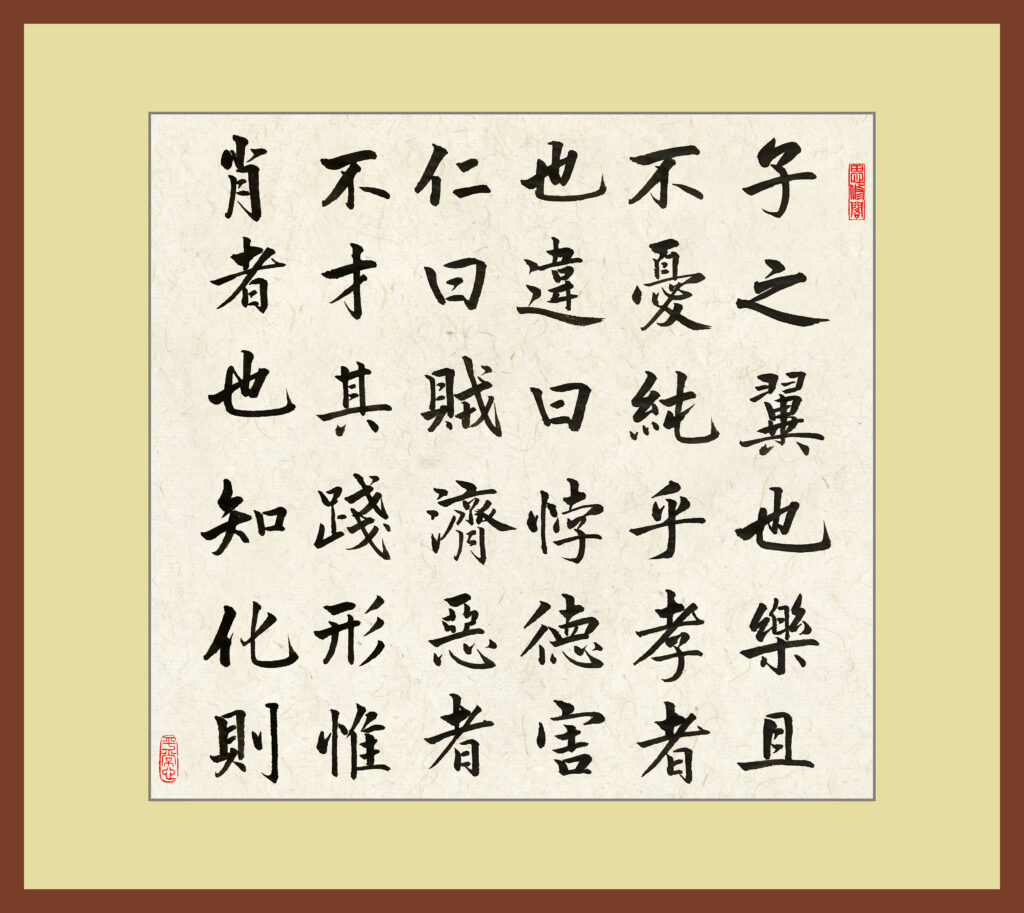 思修閣
子之翼也樂且
不憂純乎孝者
也違曰悖德害
仁曰賊濟惡者
不才其踐形惟
肖者也知化則
平常心